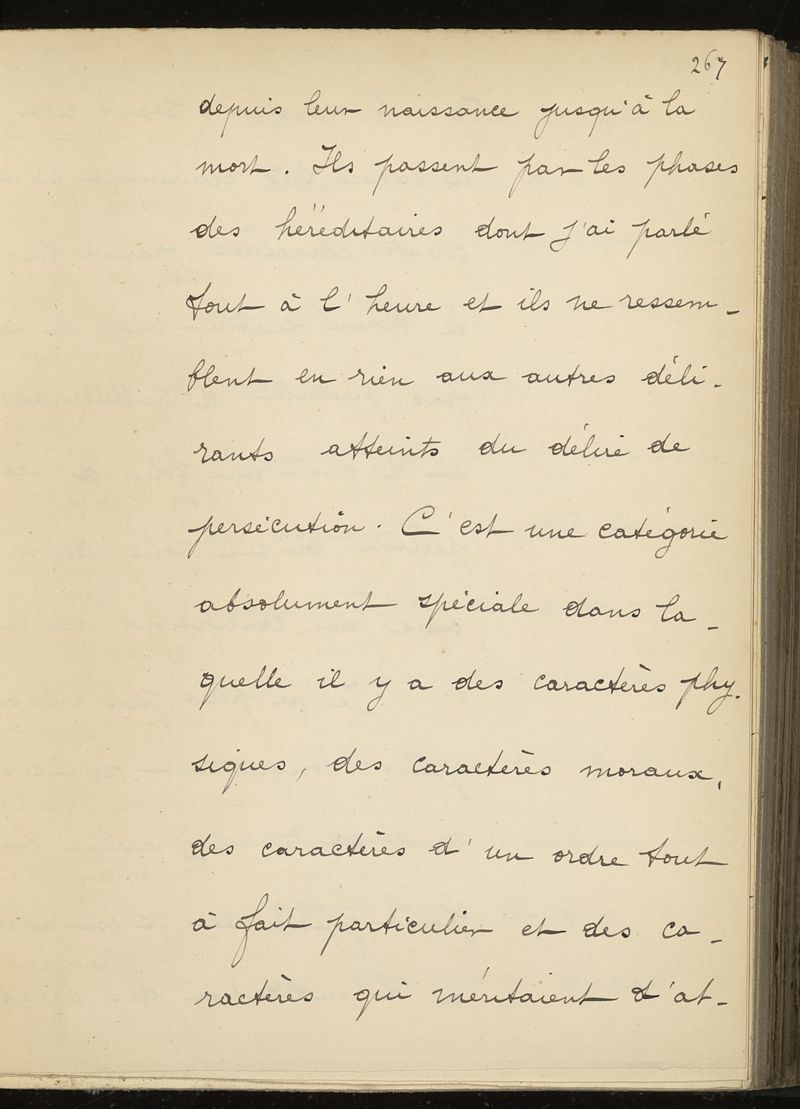 267
depuis leur naissance jusqu'à la
mort. Ils passent par les phases
des héréditaires dont j'ai parlé
tout à l'heure et ils ne ressem-
blent en rien aux autres déli-
rants atteints du délire de
persécution. C'est une catégorie
absolument spéciale dans la-
quelle il y a des caractères phy-
siques, des caractères moraux,
des caractères d'un ordre tout
à fait particulier et des ca-
ractères qui méritaient d'at-